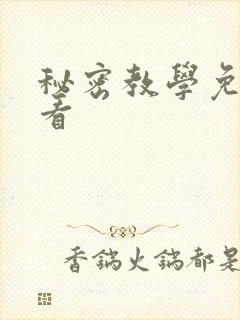 秘密教學免
看
香鍋火鍋都是